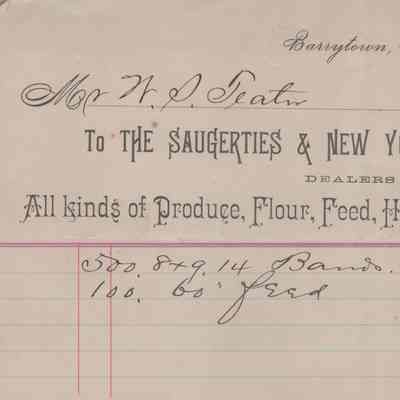 Barrytown,
Mr W. S. Teator
To THE SAUGERTIES & NEW YO
DEALERS
All kinds of Produce, Flour, Feed, H
500. 8+9. 14 Bands.
100. 60" feed